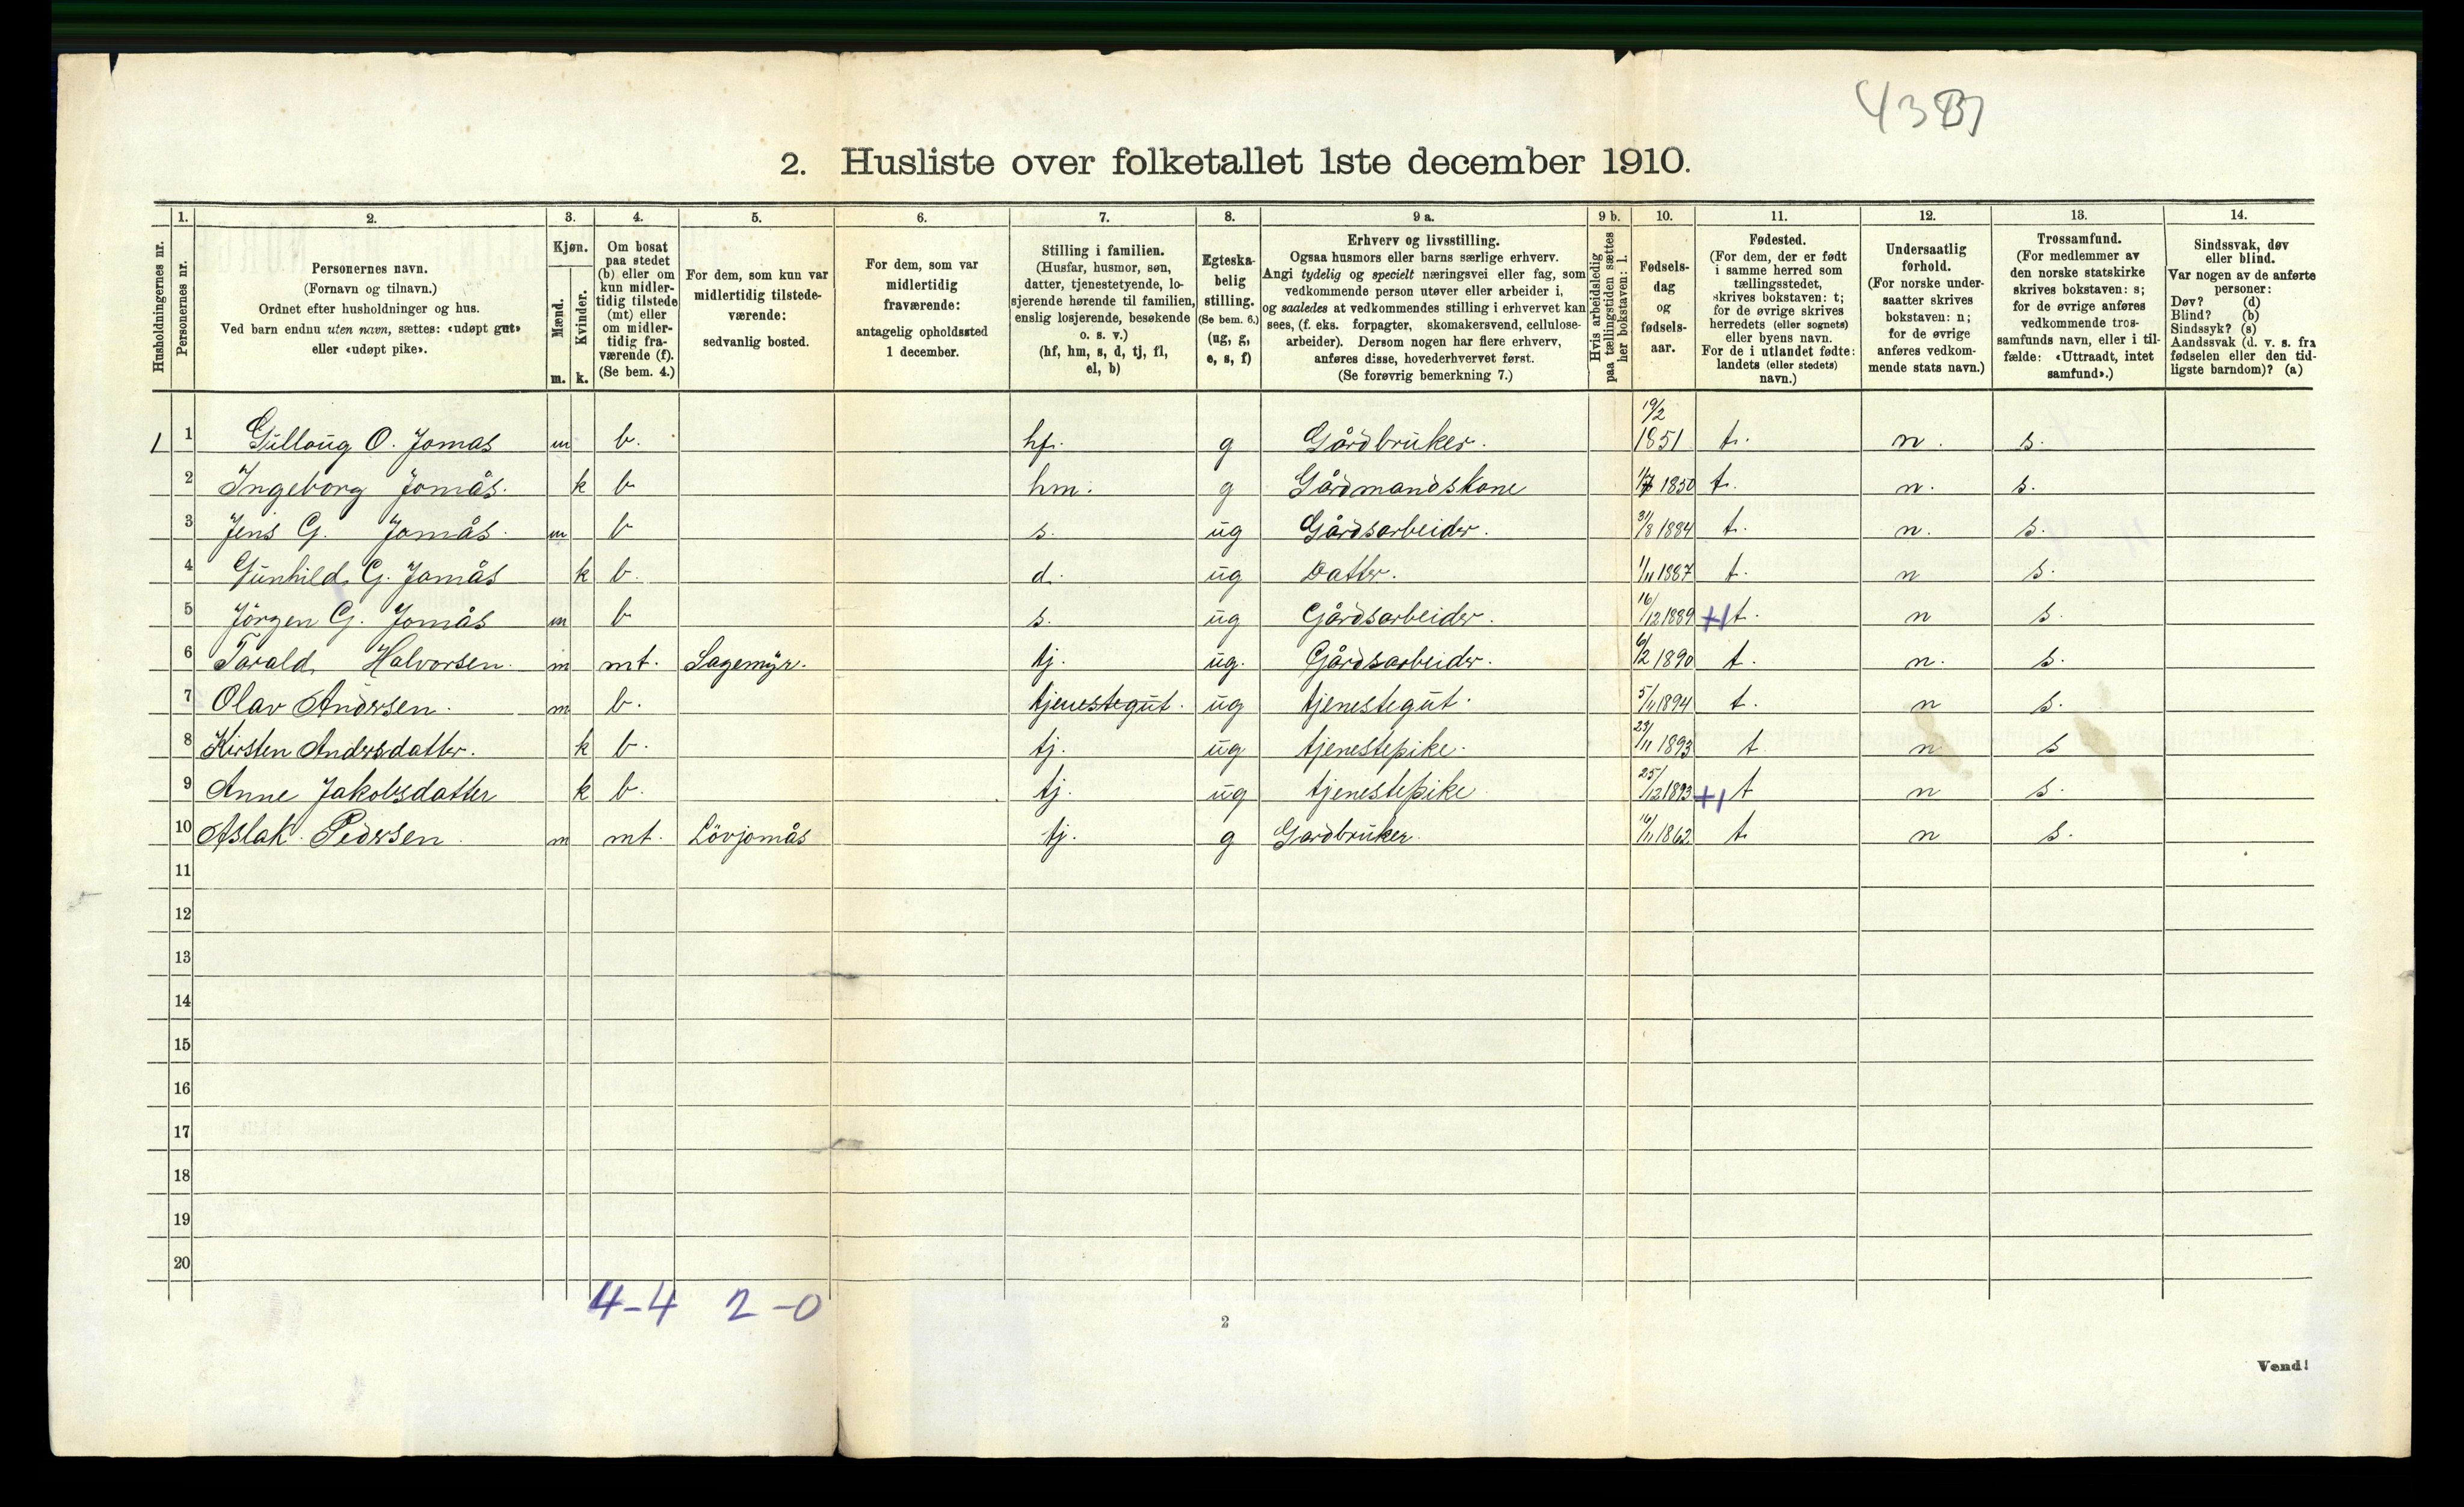 43B
2. Husliste over folketallet 1ste december 1910.
Husholdningernes nr.
1.
Personernes nr.
2.
Personernes navn.
(Fornavn og tilnavn.)
Ordnet efter husholdninger og hus.
Ved barn endnu uten navn, sættes: «udøpt gut»
eller «udøpt pike».
3.
Kjøn.
Mænd.
Kvinder.
m. k.
4.
Om bosat
paa stedet
(b) eller om
kun midler-
tidig tilstede
(mt) eller
om midler-
tidig fra-
værende (f).
(Se bem. 4.)
5.
For dem, som kun var
midlertidig tilstede-
værende:
sedvanlig bosted.
6.
For dem, som var
midlertidig
fraværende:
antagelig opholdssted
1 december.
7.
Stilling i familien.
(Husfar, husmor, søn,
datter, tjenestetyende, lo-
sjerende hørende til familien,
enslig losjerende, besøkende
o. s. v.)
(hf, hm, s, d, tj, fl,
el, b)
8.
Egteska-
belig
stilling.
(Se bem. 6.)
(ug, g,
e, s, f)
9 a.
Erhverv og livsstilling.
Ogsaa husmors eller barns særlige erhverv.
Angi tydelig og specielt næringsvei eller fag, som
vedkommende person utøver eller arbeider i,
og saaledes at vedkommendes stilling i erhvervet kan
sees, (f. eks. forpagter, skomakersvend, cellulose-
arbeider). Dersom nogen har flere erhverv,
anføres disse, hovederhvervet først.
(Se forøvrig bemerkning 7.)
9 b.
Hvis arbeidsledig
paa tællingstiden sættes
her bokstaven: l.
10.
Fødsels-
dag
og
fødsels-
aar.
11.
Fødested.
(For dem, der er født
i samme herred som
tællingsstedet,
skrives bokstaven: t;
for de øvrige skrives
herredets (eller sognets)
eller byens navn.
For de i utlandet fødte:
landets (eller stedets)
navn.)
12.
Undersaatlig
forhold.
(For norske under-
saatter skrives
bokstaven: n;
for de øvrige
anføres vedkom-
mende stats navn.)
13.
Trossamfund.
(For medlemmer av
den norske statskirke
skrives bokstaven: s;
for de øvrige anføres
vedkommende tros-
samfunds navn, eller i til-
fælde: «Uttraadt, intet
samfund».)
14.
Sindssvak, døv
eller blind.
Var nogen av de anførte
personer:
Døv? (d)
Blind? (b)
Sindssyk? (s)
Aandssvak (d. v. s. fra
fødselen eller den tid-
ligste barndom)? (a)
1 1 Gulloug O. Jomas m b. hf. g Gårdbruker. 19/2 1851 t. n. s.
2 Ingeborg Jomås. k b hm. g Gårdmandskone 1/7 1850 t. n. s.
3 Jens G. Jomås. m b s. ug Gårdsarbeider. 31/8 1884 t. n. s.
4 Gunhild G. Jomås k b. d. ug Datter. 1/11 1887 t. n s.
5 Jörgen G. Jomås m b s. ug Gårdsarbeider. 16/12 1889 +1 t. n s.
6 Tarald Halvorsen. m mt. Sagemyr. tj. ug. Gårdsarbeider. 6/2 1890 t. n. s.
7 Olav Andersen. m b. tjenestegut. ug tjenestegut. 5/11 1894 t. n s.
8 Kirsten Andersdatter. k b. tj. ug tjenestepike. 23/11 1893 t n s
9 Anne Jakobsdatter k b. tj. ug tjenestepike 25/12 1893 +1 t n s.
10 Aslak Pedersen. m mt. Lövjomås tj. g Gardbruker. 16/11 1862 t. n s.
11
12
13
14
15
16
17
18
19
20
4-4 2-0
2
Vend!